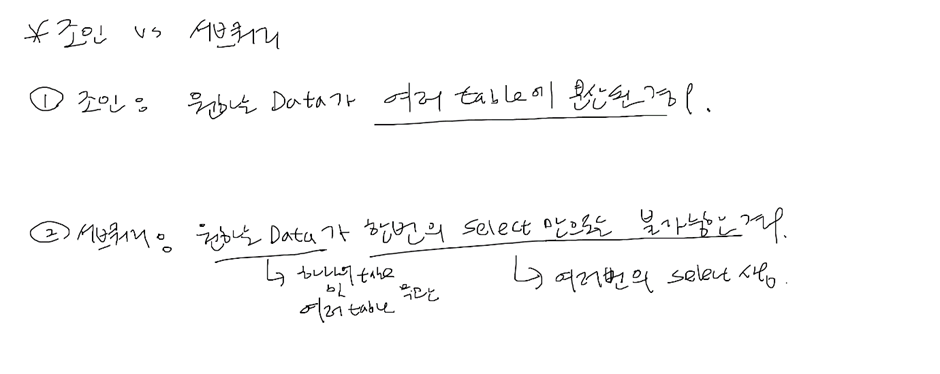 * 조인 vs 서브쿼리
① 조인은 원하는 Data가 여러 table에 분산된 경우.
② 서브쿼리는 원하는 Data가 한번의 select 만으로는 불가능한 경우.
↳ 하나의 table
및
여러 table
↳ 여러번의 select 사용